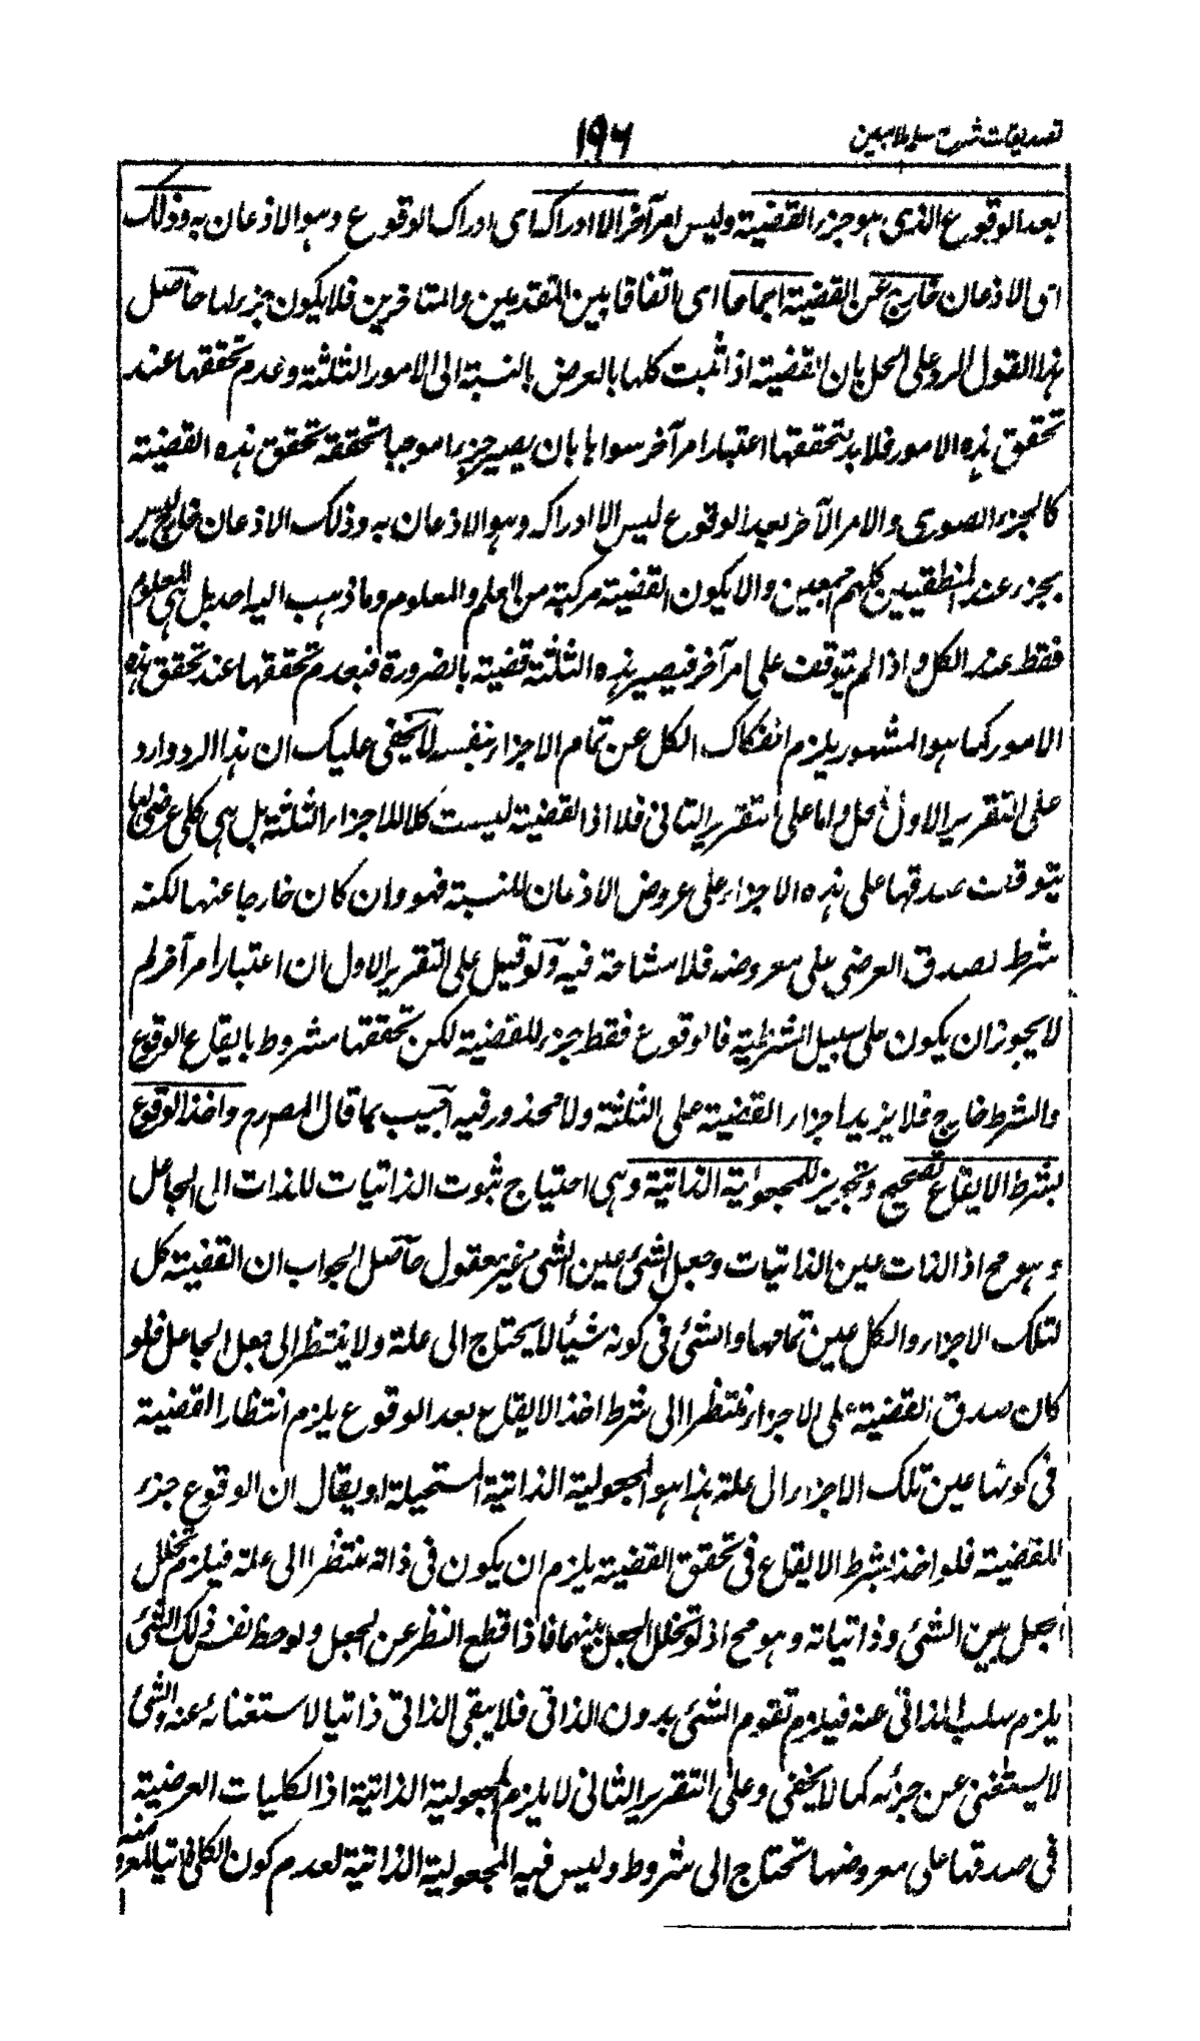 تصدیقات شرح سلم ملا مبین
۱۹۶
بعد الوقوع الذی هو جزء القضیة ولیس امر آخر الا ادراک ای ادراک الوقوع وهو الاذعان به وذلک
ای الاذعان خارج عن القضیة اجماعا ای اتفاقا بین المتقدمین والمتاخرین فلا یکون جزءلها حاصل
هذا القول الرد علی الحل بان القضیة اذا ثبت کلها بالعرض بالنسبة الی الامور الثلثة وعدم تحققها عند
تحقق هذه الامور فلا بد لتحققها اعتبار امر آخر سواها بان یصیر جزءا موجبا تحققه تحقق هذه القضیة
کالجزء الصوری والامر الآخر بعد الوقوع لیس الا ادراکه وهو الاذعان به وذلک الاذعان خارج لیس
بجزء عند المنطقیین کلهم اجمعین والا یکون القضیة مرکبة من العلم والمعلوم وما ذهب الیه احد بل هی المعلوم
فقط عند الکل واذا لم یتوقف علی امر آخر فیصیر هذه الثلثة قضیة بالضرورة فبعدم تحققها عند تحقق هذه
الامور کما هو المشهور یلزم انفکاک الکل عن تمام الاجزاء بنفسه لا یخفی علیک ان هذا الرد وارد
علی التقریر الاول للحل واما علی التقریر الثانی فلا اذ القضیة لیست کلا للاجزاء الثلثة بل هی کلی عرضی لها
یتوقف صدقها علی هذه الاجزاء علی عروض الاذعان للنسبة فهو وان کان خارجا عنها لکنه
شرط لصدق العرضی علی معروضه فلا مشاحة فیه ولو قیل علی التقریر الاول ان اعتبار امر آخر لم
لا یجوز ان یکون علی سبیل الشرطیة فالوقوع فقط جزء للقضیة لکن تحققها مشروط بایقاع الوقوع
والشرط خارج فلا یزید اجزاء القضیة علی الثلثة ولا محذور فیه اجیب بما قال المصرح واخذ الوقوع
بشرط الایقاع تصحیح وتجویز للمجعولیة الذاتیة وهی احتیاج ثبوت الذاتیات للذات الی الجاعل
وهو مح اذ الذات عین الذاتیات وجعل الشئ عین الشئ غیر معقول حاصل الجواب ان القضیة کل
لتلک الاجزاء والکل عین تمامها والشئ فی کونه شیئا لا یحتاج الی علة ولا ینتظر الی جعل الجاعل فلو
کان صدق القضیة علی الاجزاء منتظرا الی شرط اخذ الایقاع بعد الوقوع یلزم انتظار القضیة
فی کونها عین تلک الاجزاء الی علة هذا هو المجعولیة الذاتیة المستحیلة او یقال ان الوقوع جزء
للقضیة فلو اخذ بشرط الایقاع فی تحقق القضیة یلزم ان یکون فی ذاته منتظرا الی علة فیلزم تخلل
الجعل بین الشئ وذاتیاته وهو مح اذ لو تخلل الجعل بینهما فاذا قطع النظر عن الجعل ولوحظ نفس ذلک الشئ
یلزم سلب الذاتی عنه فیلزم تقوم الشئ بدون الذاتی فلا یبقی الذاتی ذاتیا لاستغنائه عنه والشئ
لا یستغنی عن جزئه کما لا یخفی وعلی التقریر الثانی لا یلزم المجعولیة الذاتیة اذ الکلیات العرضیة
فی صدقها علی معروضها تحتاج الی شروط ولیس فیه المجعولیة الذاتیة لعدم کون الکلی ذاتیا لمعروضه